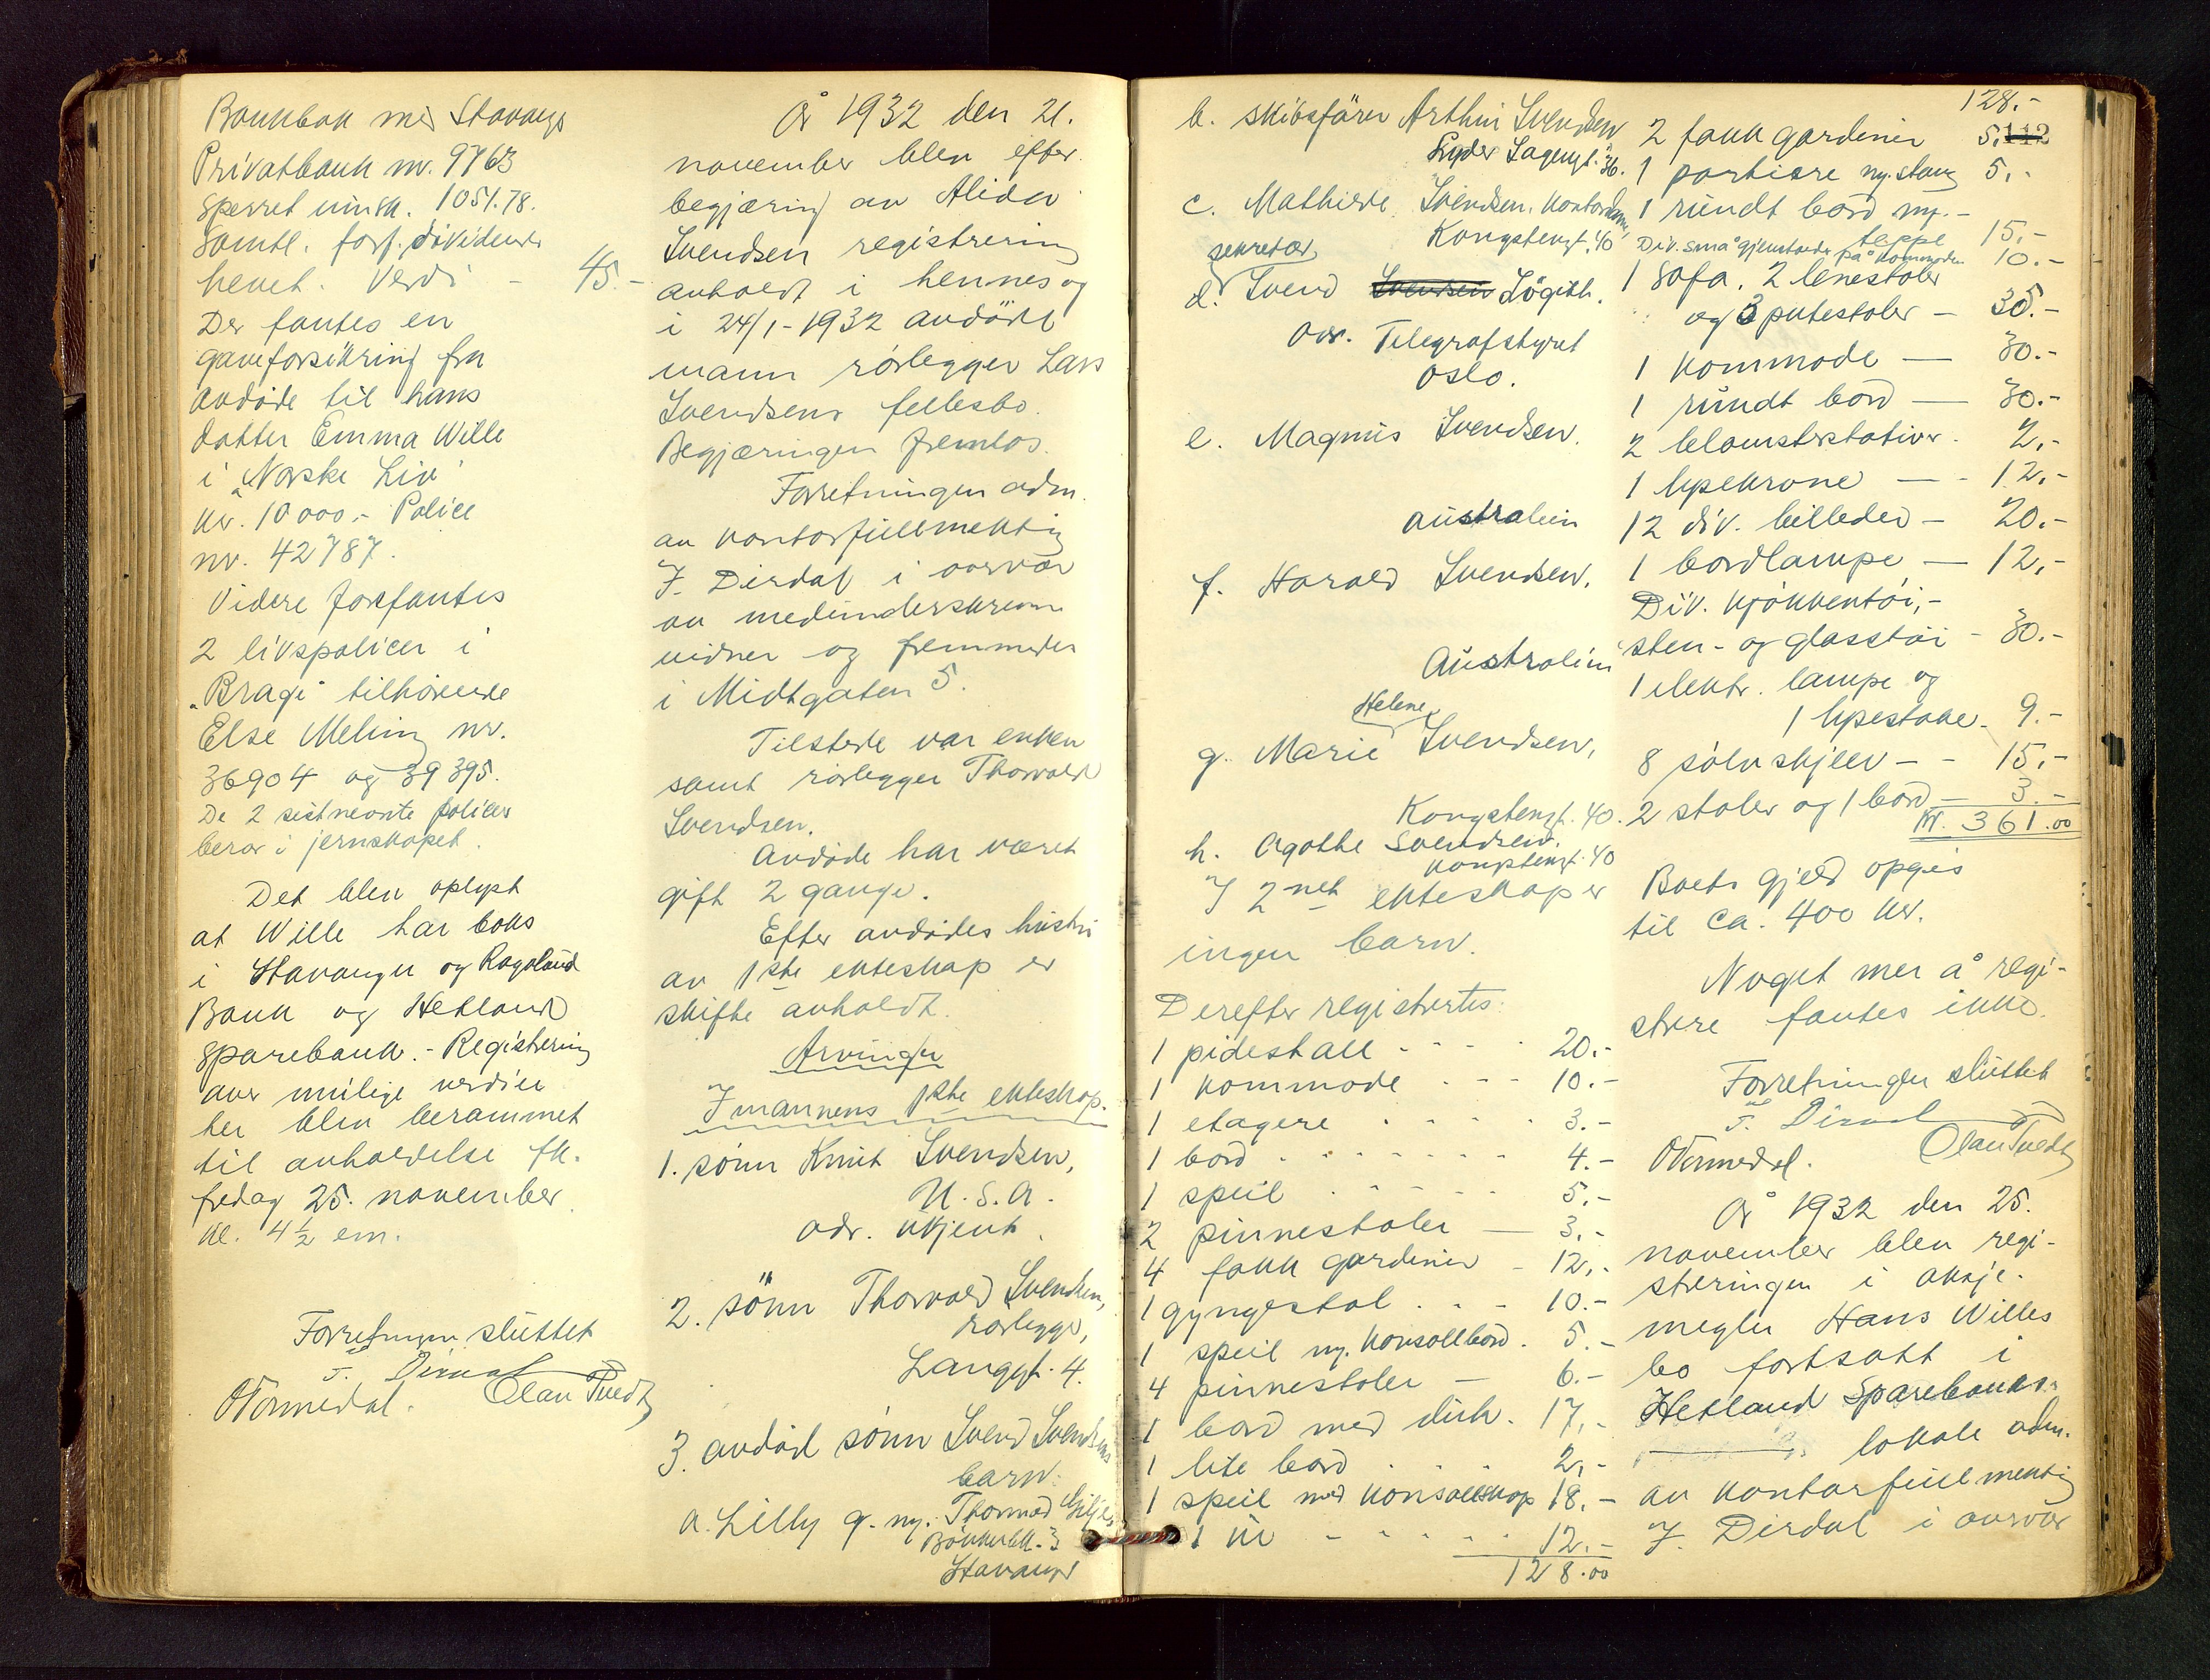 Bankbok med Stavanger
Privatbank nr. 9763
sperret innsk. 1051.78.
Samtl. forf. dividende
hevet. Verdi - 45.-
Der fantes en
gaveforsikring fra
avdøde til hans
datter Emma Wille
i "Norske Liv"
kr. 10 000.- Police
nr. 42787.
Videre forefantes
2 livspolicer i
"Bragi" tilhørende
Else Meling nr.
36904 og 39395.
De 2 sistnevnte policer
beror i jernskapet.
Det blev oplyst
at Wille har boks
i Stavanger og Rogaland
Bank og Hetland
Sparebank.- Registrering
over mulige verdier
her blev berammet
til avholdelse fk.
fredag 25. november
kl. 4½ em.
Forretningen sluttet
J. Dirdal
O Tormedal. Olav Tvedt
År 1932 den 21.
november blev efter
begjæring av Alida
Svendsen registrering
avholdt i hennes og
i 24/1-1932 avdøde
mann rørlegger Lars
Svendsens fellesbo.
Begjæringen fremlos.
Forretningen adm.
av kontorfullmektig
J. Dirdal i overvær
av medunderskrevne
vidner og fremmøder
i Midtgaten 5.
Tilstede var enken
samt rørlegger Thorvald
Svendsen.
Avdøde har været
gift 2 gange.
Efter avdødes hustru
av 1ste ekteskap er
skifte avholdt.
Arvinger
I mannens 1ste ekteskap.
1. sønn Knut Svendsen,
U.S.A.
adr. ukjent.
2. sønn Thorvald Svendsen,
rørlegger,
Langgt. 4.
3. avdød sønn Svend Svendsens
barn:
a. Lilly g. m. Thormod Gilje,
Bøkkerbk. 3
Stavanger
b. skibsfører Arthur Svendsen
Lyder Sagensgt. 36.
c. Mathilde Svendsen, kontordame,
Kongstensgt. 40
sekretær
d. Svend Svendsen Løgith.
Adr. Telegrafstyret
Oslo.
e. Magnus Svendsen.
Australien
f. Harald Svendsen.
Australien
Helene
g. Marie Svendsen,
Kongstensgt. 40.
h. Agathe Svendsen.
Kongstensgt. 40
I 2net ekteskap er
ingen barn.
Derefter registrertes:
1 pidestall - - - - 20.-
1 kommode . - - 10.-
1 etagere . . . . 3.-
1 bord . - - - - - - 4.-
1 speil . - - - - 5.-
2 pinnestoler — 3.-
4 fakk gardiner - 12.-
1 gyngestol . . - 10.-
1 speil m. konsollbord. 5.-
4 pinnestoler — 6.-
1 bord med duk. 17.-
1 lite bord . . . . 2.-
1 speil med konsollskap 18.-
1 ur - - - - - - 12.-
128.00
128.-
112
2 fakk gardiner 5.-
1 portiere m. stang 5.-
1 rundt bord m.-
teppe 15.-
Div. små gjenstande på kommoden 10.-
1 sofa, 2 lenestoler
og 3 putestoler — 35.-
1 kommode — 30.-
1 rundt bord — 30.-
2 blomsterstativer. 2.-
1 lysekrone — - 12.-
12 div. billeder — 20.-
1 bordlampe — 12.-
Div. kjøkkentøi,-
sten- og glasstøi - 30.-
1 elektr. lampe og
1 lysestake - 9.-
8 sølvskjeer - - 15.-
2 stoler og 1 bord — 3.-
Kr. 361.00
Boets gjeld opgis
til ca. 400 kr.
Noget mer å regi-
strere fantes ikke.
Forretningen sluttet
J. Dirdal
O Tormedal. Olav Tvedt
År 1932 den 25.
november blev regi-
streringen i aksje-
megler Hans Willes
bo fortsatt i
Hetland Sparebanks
lokale adm.
av kontorfullmektig
J. Dirdal i overvær